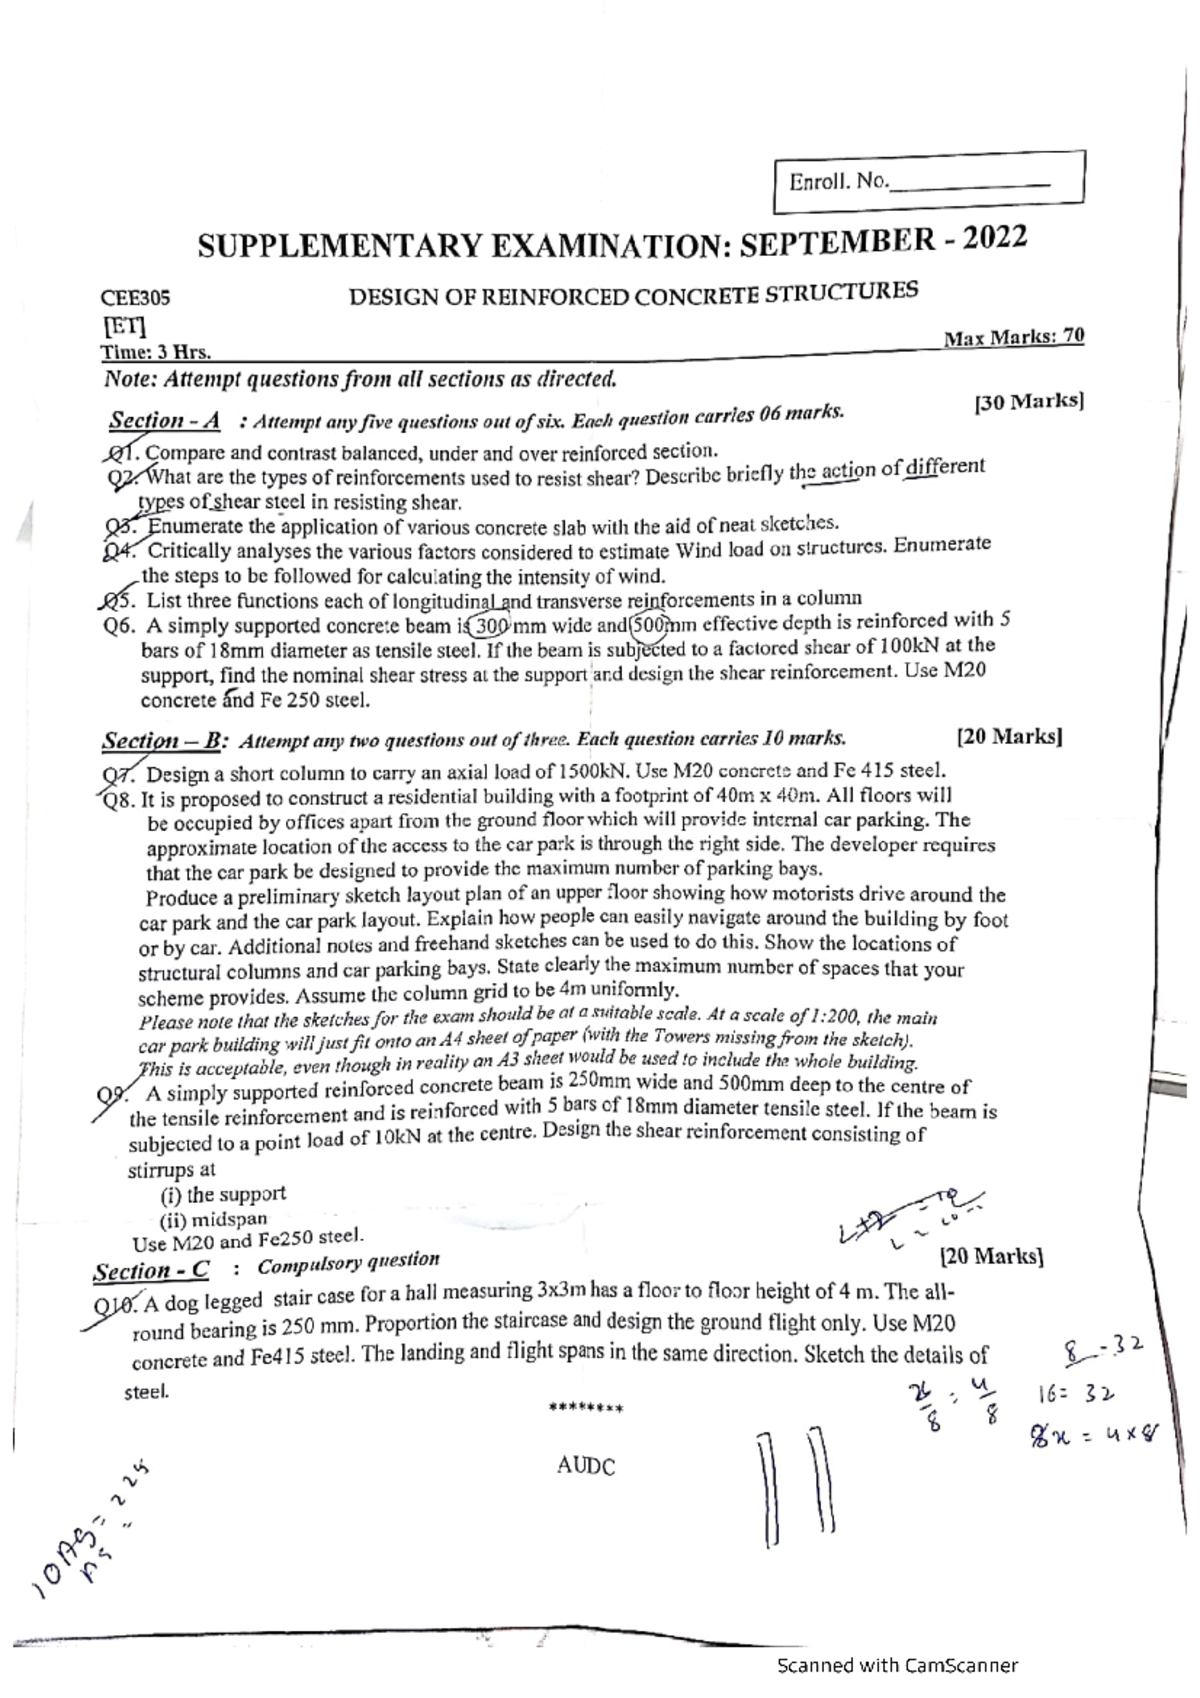 Enroll. No.
SUPPLEMENTARY EXAMINATION: SEPTEMBER - 2022
CEE305 DESIGN OF REINFORCED CONCRETE STRUCTURES
[ET]
Time: 3 Hrs. Max Marks: 70
Note: Attempt questions from all sections as directed.
Section - A : Attempt any five questions out of six. Each question carries 06 marks. [30 Marks]
Q1. Compare and contrast balanced, under and over reinforced section.
Q2. What are the types of reinforcements used to resist shear? Describe briefly the action of different
types of shear steel in resisting shear.
Q3. Enumerate the application of various concrete slab with the aid of neat sketches.
Q4. Critically analyses the various factors considered to estimate Wind load on structures. Enumerate
the steps to be followed for calculating the intensity of wind.
Q5. List three functions each of longitudinal and transverse reinforcements in a column
Q6. A simply supported concrete beam is 300 mm wide and 500mm effective depth is reinforced with 5
bars of 18mm diameter as tensile steel. If the beam is subjected to a factored shear of 100kN at the
support, find the nominal shear stress at the support and design the shear reinforcement. Use M20
concrete and Fe 250 steel.
Section – B: Attempt any two questions out of three. Each question carries 10 marks. [20 Marks]
Q7. Design a short column to carry an axial load of 1500kN. Use M20 concrete and Fe 415 steel.
Q8. It is proposed to construct a residential building with a footprint of 40m x 40m. All floors will
be occupied by offices apart from the ground floor which will provide internal car parking. The
approximate location of the access to the car park is through the right side. The developer requires
that the car park be designed to provide the maximum number of parking bays.
Produce a preliminary sketch layout plan of an upper floor showing how motorists drive around the
car park and the car park layout. Explain how people can easily navigate around the building by foot
or by car. Additional notes and freehand sketches can be used to do this. Show the locations of
structural columns and car parking bays. State clearly the maximum number of spaces that your
scheme provides. Assume the column grid to be 4m uniformly.
Please note that the sketches for the exam should be at a suitable scale. At a scale of 1:200, the main
car park building will just fit onto an A4 sheet of paper (with the Towers missing from the sketch).
This is acceptable, even though in reality an A3 sheet would be used to include the whole building.
Q9. A simply supported reinforced concrete beam is 250mm wide and 500mm deep to the centre of
the tensile reinforcement and is reinforced with 5 bars of 18mm diameter tensile steel. If the beam is
subjected to a point load of 10kN at the centre. Design the shear reinforcement consisting of
stirrups at
(i) the support
(ii) midspan
Use M20 and Fe250 steel.
Section - C : Compulsory question [20 Marks]
Q10. A dog legged stair case for a hall measuring 3x3m has a floor to floor height of 4 m. The all-
round bearing is 250 mm. Proportion the staircase and design the ground flight only. Use M20
concrete and Fe415 steel. The landing and flight spans in the same direction. Sketch the details of
steel.
8 - 32
16 = 32
8x = 4 x 8
********
AUDC
Scanned with CamScanner